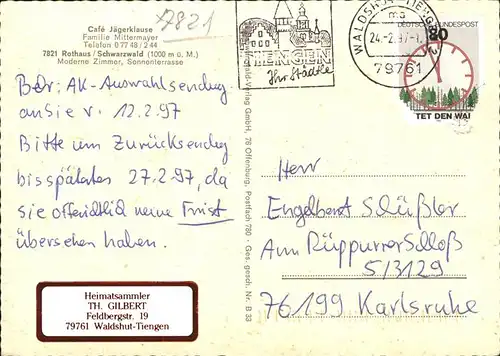 7821
Café Jägerklause
Familie Mittermayer
Telefon 0 77 48 / 2 44
7821 Rothaus / Schwarzwald (1000 m ü. M.)
Moderne Zimmer, Sonnenterrasse
TIENGEN
Ihr Städtle
WALDSHUT-TIENGEN
ma
24.-2.97-1
79761
DEUTSCHE BUNDESPOST
80
TET DEN WAL
Betr: AK-Auswahlsendung
an Sie v. 12.2.97
Bitte um Zurücksendung
bis spätestens 27.2.97, da
sie offensichtlich meine Frist
übersehen haben.
Verlag GmbH, 76 Offenburg, Postfach 780 · Ges. gesch. Nr. B 33
Herr
Engelbert Schüßler
Am Rüppurrer Schloß
5/3129
76199 Karlsruhe
Heimatsammler
TH. GILBERT
Feldbergstr. 19
79761 Waldshut-Tiengen